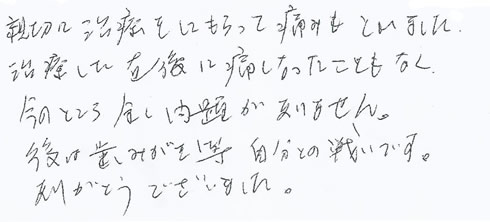 親切に治療をしてもらって痛みもとれました。
治療した直後に痛くなったこともなく、
今のところ全く問題がありません。
後は歯みがき等 自分との戦いです。
ありがとうございました。